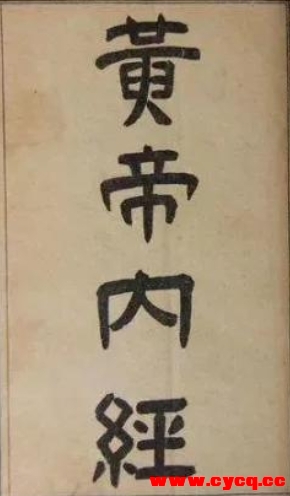 黃帝內經
www.cycq.cc